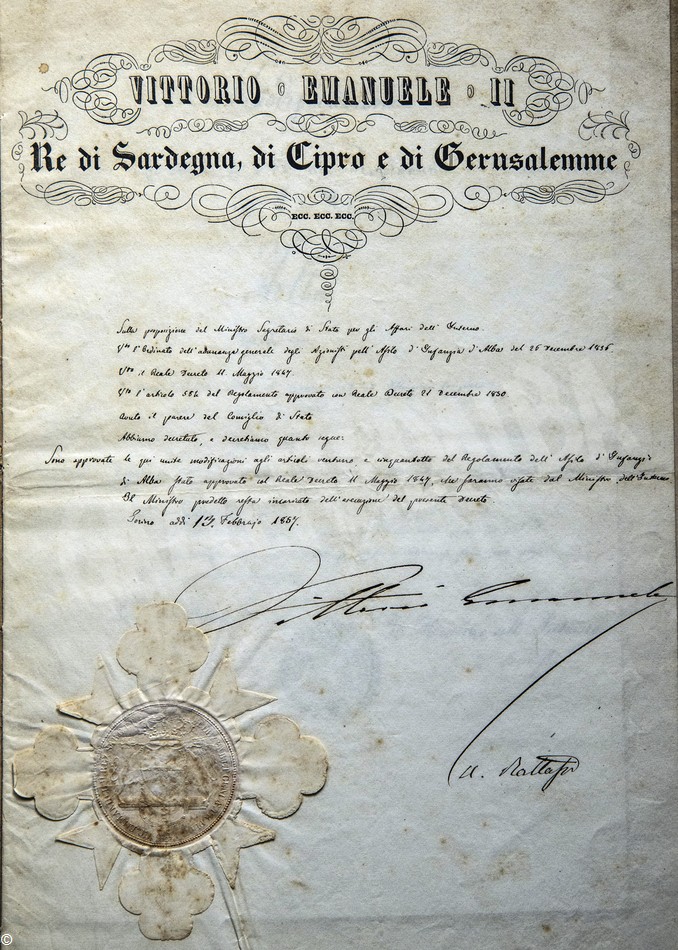 VITTORIO EMANUELE II
Re di Sardegna, di Cipro e di Gerusalemme
ECC. ECC. ECC.
Sulla proposizione del Ministro Segretario di Stato per gli Affari dell' Interno.
V.to l'Ordinato dell'adunanza generale degli Azionisti pell' Asilo d'Infanzia d'Alba del 26 Decembre 1856
V.to il Reale Decreto 11 Maggio 1847.
V.to l'articolo del Regolamento approvato con Reale Decreto 21 Decembre 1850.
Avuto il parere del Consiglio di Stato
Abbiamo decretato, e decretiamo quanto segue:
Sono approvate le qui unite modificazioni agli articoli ventuno e cinquantotto del Regolamento dell' Asilo d'Infanzia
di Alba stato approvato col Reale Decreto 11 Maggio 1847, che saranno visate dal Ministro dell'Interno
Il Ministro predetto resta incaricato dell'esecuzione del presente Decreto.
Torino addì 13 Febbrajo 1857.
Vittorio Emanuele
U. Rattazzi
©